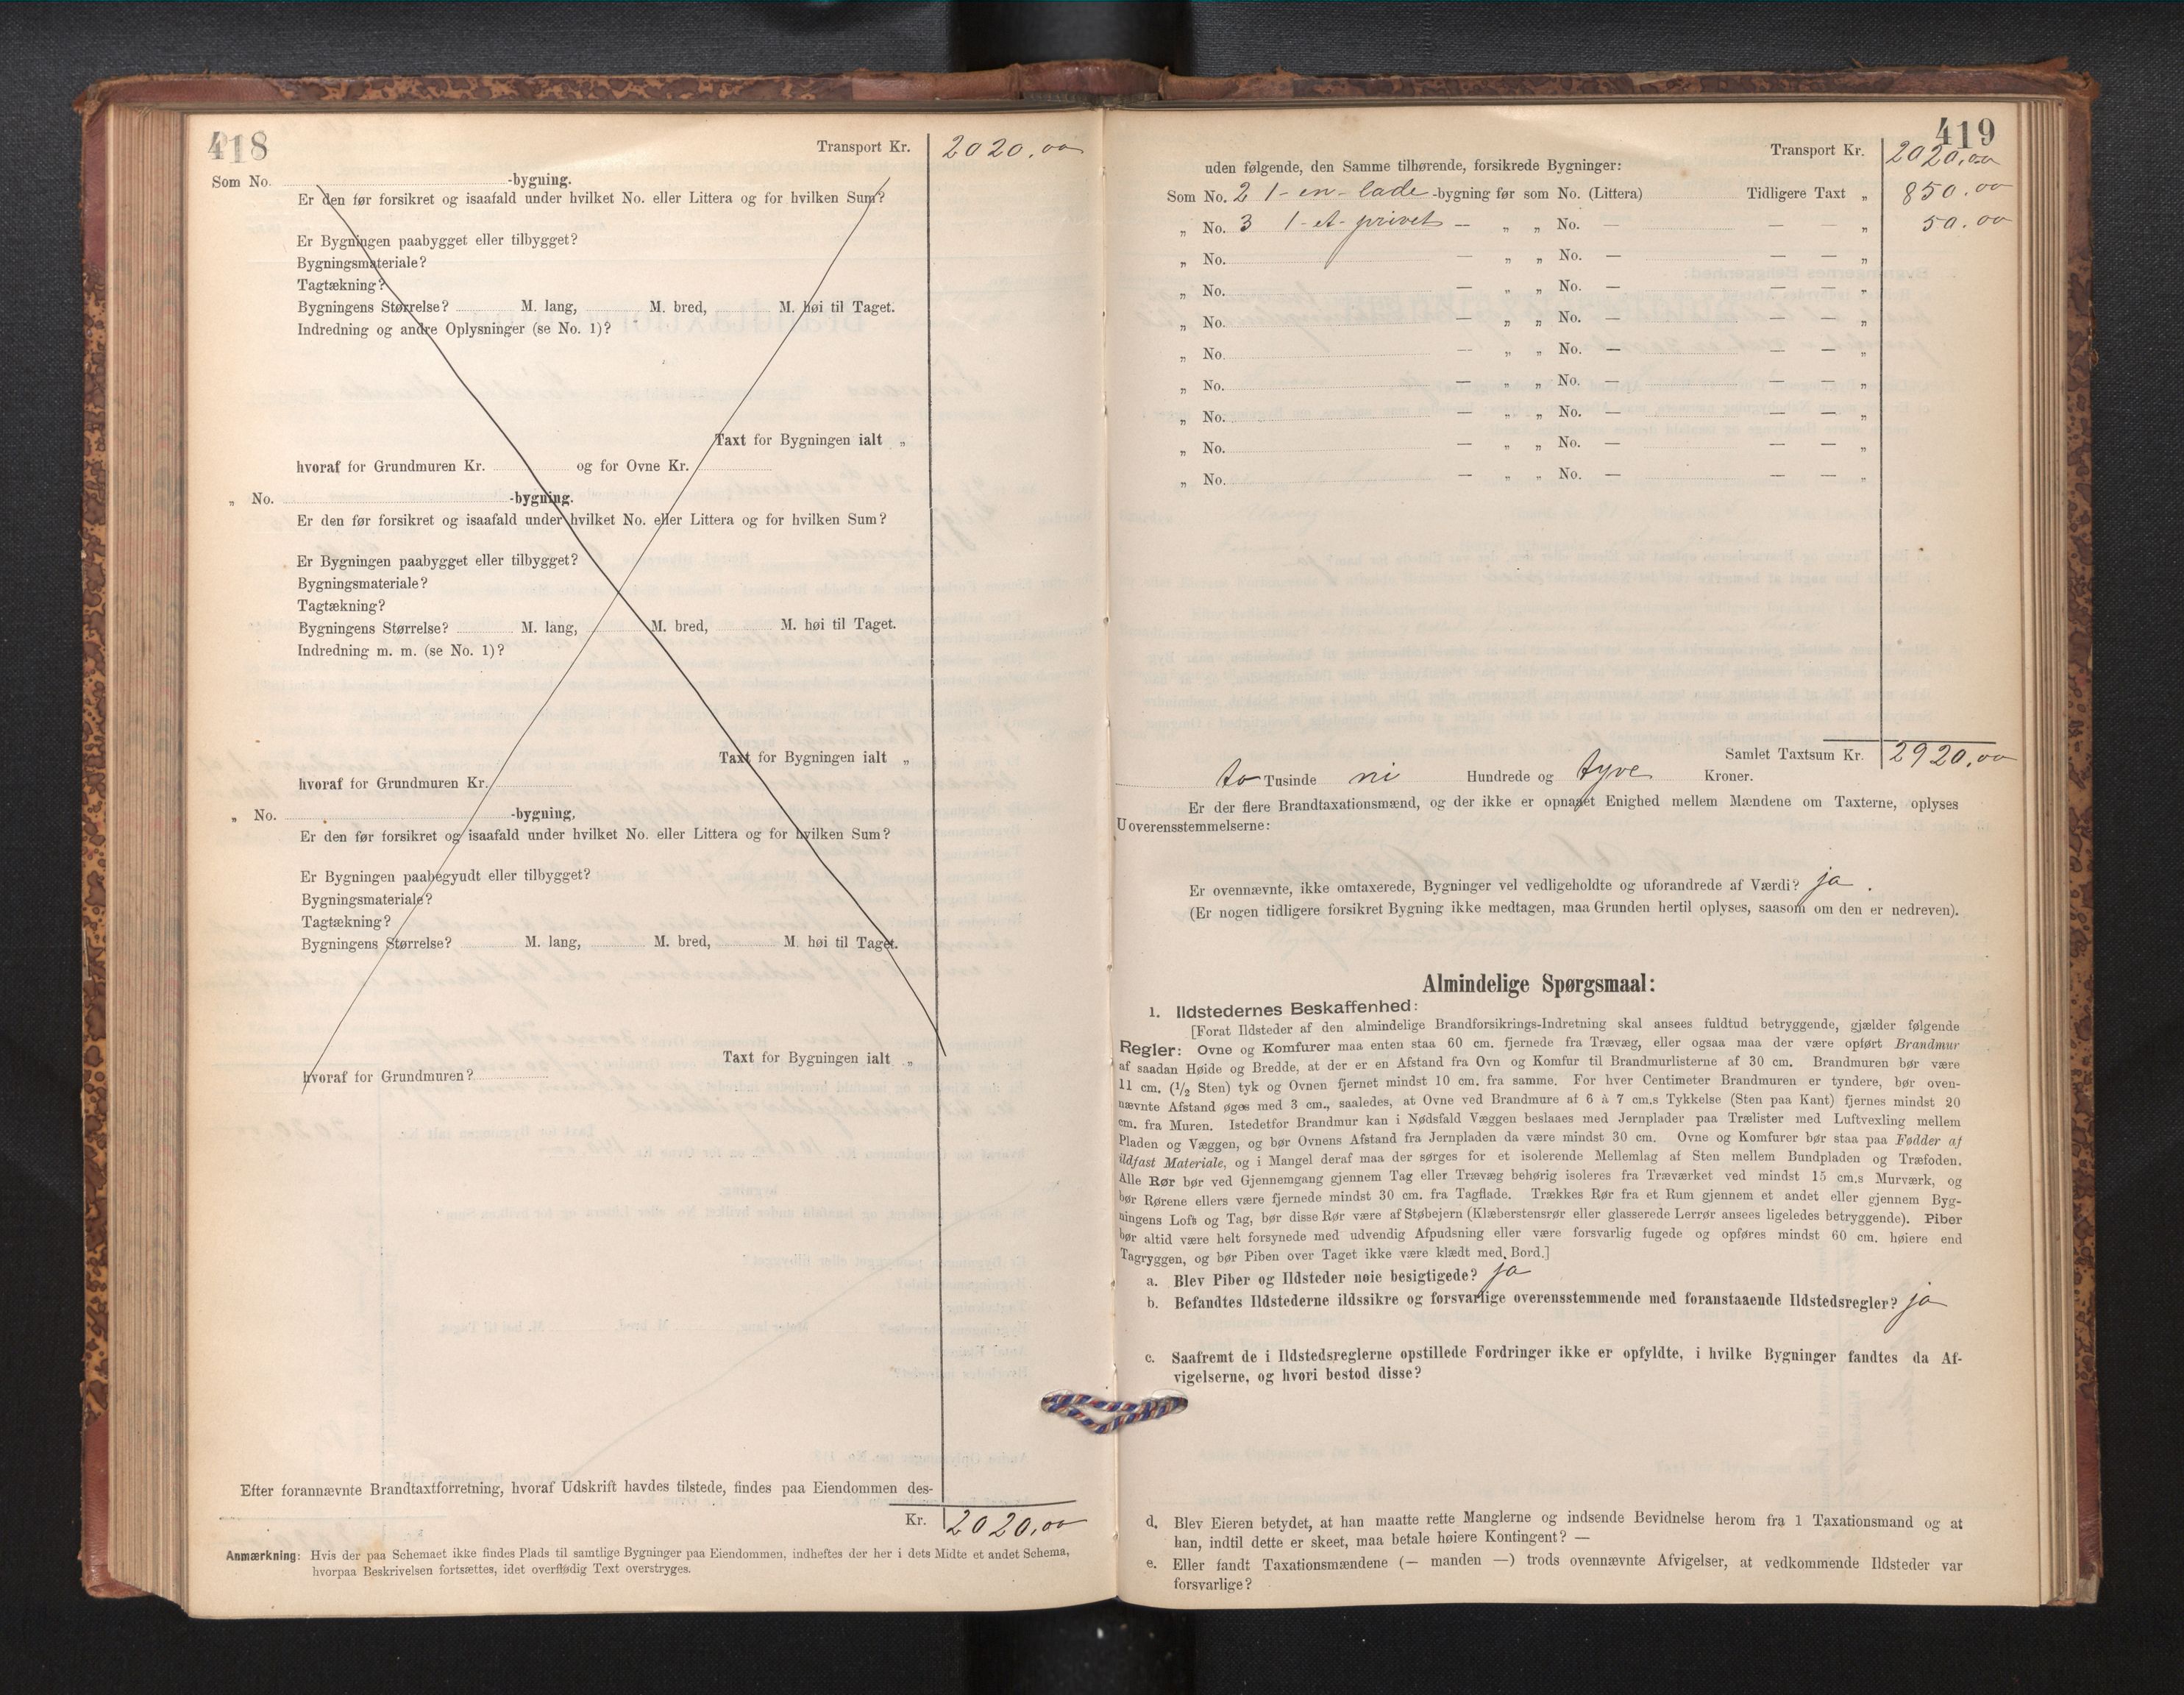 418
Transport Kr. 2020.00
Som No. -bygning.
Er den før forsikret og isaafald under hvilket No. eller Littera og for hvilken Sum?
Er Bygningen paabygget eller tilbygget?
Bygningsmateriale?
Tagtækning?
Bygningens Størrelse? M. lang, M. bred, M. høi til Taget.
Indredning og andre Oplysninger (se No. 1)?
Taxt for Bygningen ialt „
hvoraf for Grundmuren Kr. og for Ovne Kr.
„ No. -bygning.
Er den før forsikret og isaafald under hvilket No. eller Littera og for hvilken Sum?
Er Bygningen paabygget eller tilbygget?
Bygningsmateriale?
Tagtækning?
Bygningens Størrelse? M. lang, M. bred, M. høi til Taget.
Indredning m. m. (se No. 1)?
Taxt for Bygningen ialt „
hvoraf for Grundmuren Kr.
„ No. -bygning.
Er den før forsikret og isaafald under hvilket No. eller Littera og for hvilken Sum?
Er Bygningen paabegyndt eller tilbygget?
Bygningsmateriale?
Tagtækning?
Bygningens Størrelse? M. lang, M. bred, M. høi til Taget.
Taxt for Bygningen ialt „
hvoraf for Grundmuren?
Efter forannævnte Brandtaxtforretning, hvoraf Udskrift havdes tilstede, findes paa Eiendommen des-
Kr. 2020.00
Anmærkning: Hvis der paa Schemaet ikke findes Plads til samtlige Bygninger paa Eiendommen, indheftes der her i dets Midte et andet Schema,
hvorpaa Beskrivelsen fortsættes, idet overflødig Text overstryges.
419
Transport Kr. 2020.00
uden følgende, den Samme tilhørende, forsikrede Bygninger:
Som No. 2 1-en-lade -bygning før som No. (Littera) Tidligere Taxt „ 850.00
„ No. 3 1-et-privet — „ „ No. — — — „ 50.00
„ No. — „ „ No. — — — „
„ No. — „ „ No. — — — „
„ No. — „ „ No. — — — „
„ No. — „ „ No. — — — „
„ No. — „ „ No. — — — „
„ No. — „ „ No. — — — „
„ No. — „ „ No. — — — „
„ No. — „ „ No. — — — „
Samlet Taxtsum Kr. 2920.00
to Tusinde ni Hundrede og tyve Kroner.
Er der flere Brandtaxationsmænd, og der ikke er opnaaet Enighed mellem Mændene om Taxterne, oplyses
Uoverensstemmelserne:
Er ovennævnte, ikke omtaxerede, Bygninger vel vedligeholdte og uforandrede af Værdi? ja.
(Er nogen tidligere forsikret Bygning ikke medtagen, maa Grunden hertil oplyses, saasom om den er nedreven).
Almindelige Spørgsmaal:
1. Ildstedernes Beskaffenhed:
[Forat Ildsteder af den almindelige Brandforsikrings-Indretning skal ansees fuldtud betryggende, gjælder følgende
Regler: Ovne og Komfurer maa enten staa 60 cm. fjernede fra Trævæg, eller ogsaa maa der være opført Brandmur
af saadan Høide og Bredde, at der er en Afstand fra Ovn og Komfur til Brandmurlisterne af 30 cm. Brandmuren bør være
11 cm. (1/2 Sten) tyk og Ovnen fjernet mindst 10 cm. fra samme. For hver Centimeter Brandmuren er tyndere, bør oven-
nævnte Afstand øges med 3 cm., saaledes, at Ovne ved Brandmure af 6 à 7 cm.s Tykkelse (Sten paa Kant) fjernes mindst 20
cm. fra Muren. Istedetfor Brandmur kan i Nødsfald Væggen beslaaes med Jernplader paa Trælister med Luftvexling mellem
Pladen og Væggen, og bør Ovnens Afstand fra Jernpladen da være mindst 30 cm. Ovne og Komfurer bør staa paa Fødder af
ildfast Materiale, og i Mangel deraf maa der sørges for et isolerende Mellemlag af Sten mellem Bundpladen og Træfoden.
Alle Rør bør ved Gjennemgang gjennem Tag eller Trævæg behørig isoleres fra Træværket ved mindst 15 cm.s Murværk, og
bør Rørene ellers være fjernede mindst 30 cm. fra Tagflade. Trækkes Rør fra et Rum gjennem et andet eller gjennem Byg-
ningens Loft og Tag, bør disse Rør være af Støbejern (Klæberstensrør eller glasserede Lerrør ansees ligeledes betryggende). Piber
bør altid være helt forsynede med udvendig Afpudsning eller være forsvarlig fugede og opføres mindst 60 cm. høiere end
Tagryggen, og bør Piben over Taget ikke være klædt med Bord.]
a. Blev Piber og Ildsteder nøie besigtigede? ja
b. Befandtes Ildstederne ildssikre og forsvarlige overensstemmende med foranstaaende Ildstedsregler? ja
c. Saafremt de i Ildstedsreglerne opstillede Fordringer ikke er opfyldte, i hvilke Bygninger fandtes da Af-
vigelserne, og hvori bestod disse?
d. Blev Eieren betydet, at han maatte rette Manglerne og indsende Bevidnelse herom fra 1 Taxationsmand og at
han, indtil dette er skeet, maa betale høiere Kontingent? —
e. Eller fandt Taxationsmændene (— manden —) trods ovennævnte Afvigelser, at vedkommende Ildsteder var
forsvarlige?